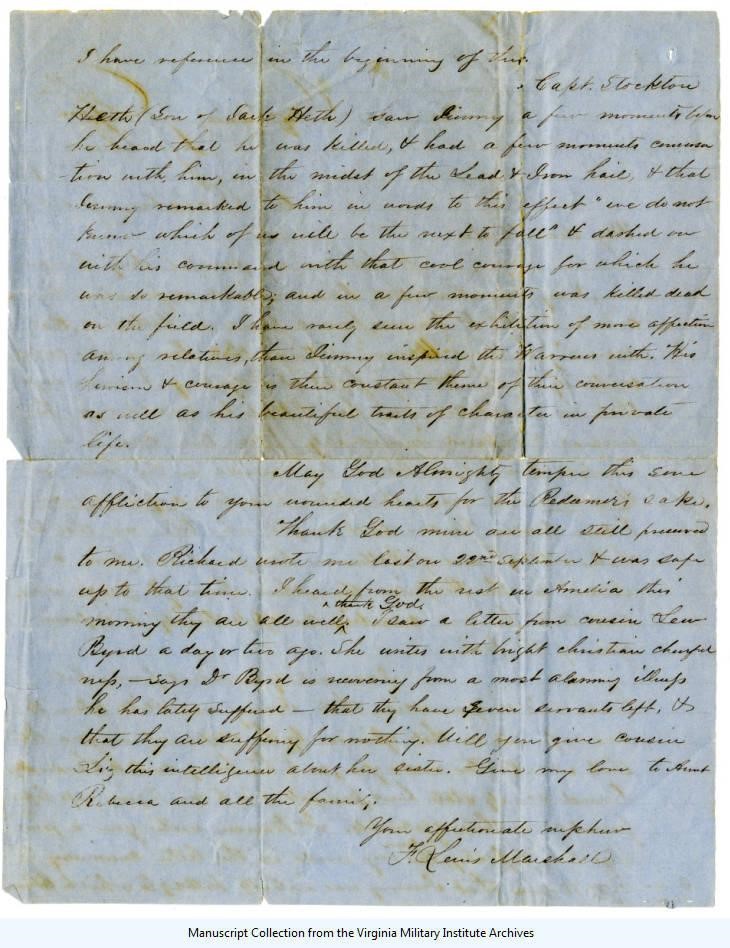 I have reference in the beginning of this.
Capt. Stockton
Heth (Son of Jack Heth) saw Jimmy a few moments before
he heard that he was killed, & had a few moments conversa
-tion with him, in the midst of the Lead & Iron hail, & that
Jimmy remarked to him in words to this effect "we do not
know which of us will be the next to fall" & dashed on
with his command with that cool courage for which he
was so remarkable; and in a few moments was killed dead
on the field. I have rarely seen the exhibition of more affection
among relatives, than Jimmy inspired the Warrens with. His
heroism & courage is their constant theme of their conversation
as well as his beautiful traits of character in private
life.
May God Almighty temper this sore
affliction to your wounded hearts for the Redeemer's sake.
Thank God mine are all still preserved
to me. Richard wrote me last on 22nd September & was safe
up to that time. I heard from the rest in Amelia this
morning they are all well, thank God. I saw a letter from cousin Lew
Byrd a day or two ago. She writes with bright christian cheerful
ness, - says Dr Byrd is recovering from a most alarming illness
he has lately suffered - that they have seven servants left, &
that they are suffering for nothing. Will you give cousin
Liz this intelligence about her sister. Give my love to Aunt
Rebecca and all the family.
Your affectionate nephew
F. Lewis Marshall
Manuscript Collection from the Virginia Military Institute Archives